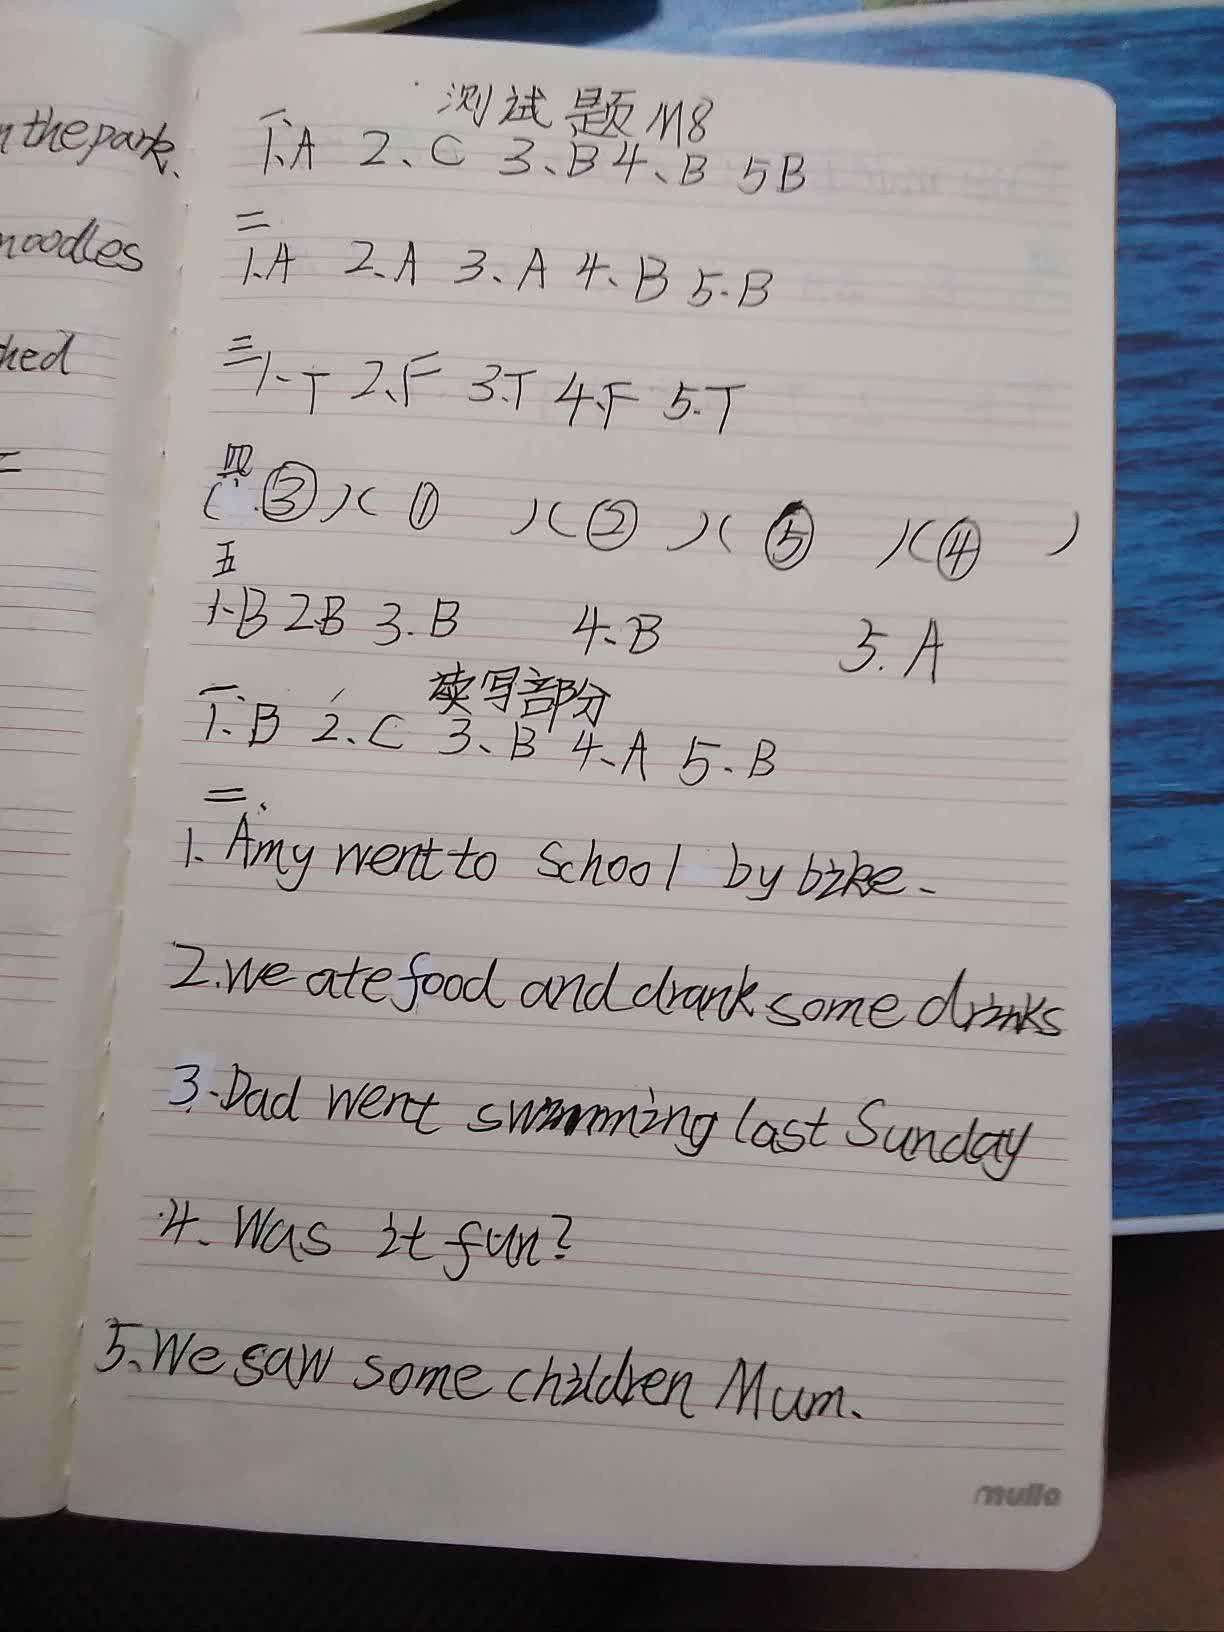 n the park.
noodles
hed
测试题 M8
一、
1、A 2、C 3、B 4、B 5 B
二
1.A 2.A 3、A 4、B 5.B
三 1.T 2、F 3.T 4.F 5.T
四
( ③ ) ( ① ) ( ② ) ( ⑤ ) ( ④ )
五
1.B 2.B 3.B 4.B 5.A
读写部分
一、
1、B 2、C 3、B 4、A 5.B
二、
1. Amy went to school by bike.
2.We ate food and drank some drinks
3.Dad went swimming last Sunday
4. Was it fun?
5、We saw some children Mum.